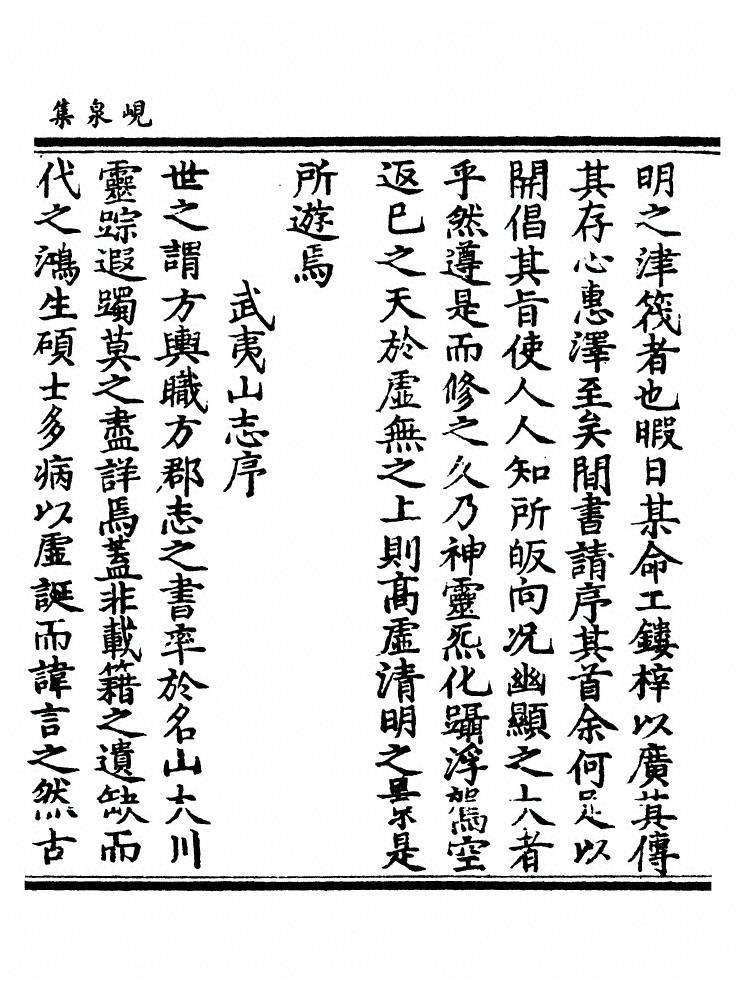 峴泉集
明之津筏者也暇日某命工鏤梓以廣其傳
其存心惠澤至矣間書請序其首余何足以
開倡其旨使人人知所皈向况幽顯之大者
乎然遵是而修之久乃神靈炁化躡浮駕空
返已之天於虛無之上則高虛清明之景是
所遊焉
武夷山志序
世之謂方輿職方郡志之書率於名山大川
靈踪遐躅莫之盡詳焉蓋非載籍之遺缺而
代之鴻生碩士多病以虛誕而諱言之然古